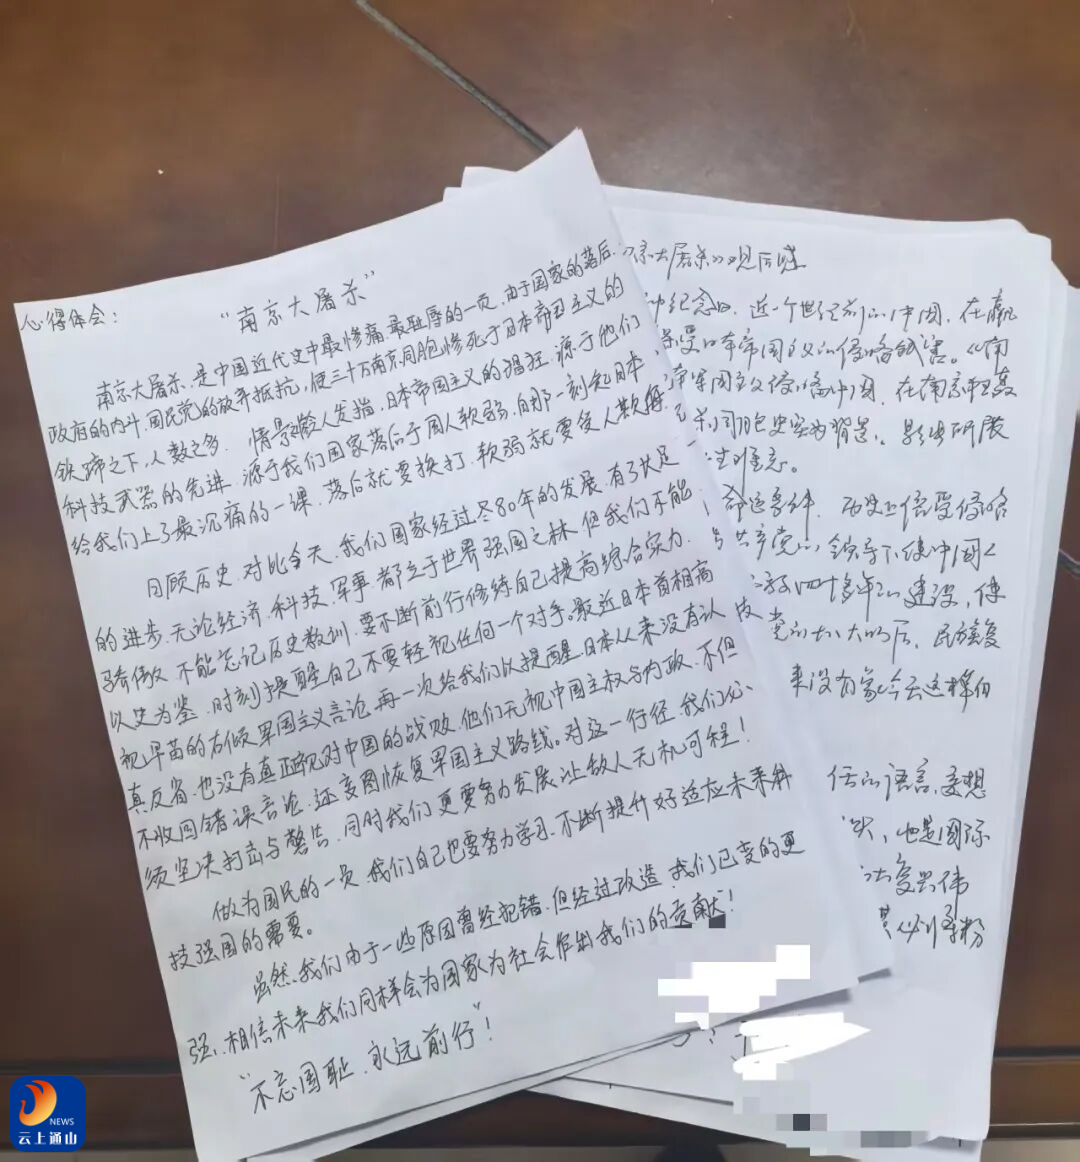 心得体会：
“南京大屠杀”
南京大屠杀，是中国近代史中最惨痛、最耻辱的一页，由于国家的落后，
政府的内斗，国民党的放弃抵抗，使三十万南京同胞惨死于日本帝国主义的
铁蹄之下，人数之多，情景之惨人发指，日本帝国主义的猖狂，源于他们
科技武器的先进，源于我们国家落后于国人软弱，自那一刻起日本
给我们上了最沉痛的一课，落后就要换打，软弱就要受人欺
回顾历史，对比今天，我们国家经过80年的发展，有了长足
的进步，无论经济、科技、军事，都立于世界强国之林，但我们不能
骄傲，不能忘记历史教训，要不断前行修练自己提高综合实力，
以史为鉴，时刻提醒自己不要轻视任何一个对手。最近日本首相高
视早苗的右倾军国主义言论，再一次给我们以提醒，日本从来没有认
真反省，也没有真正视对中国的战败，他们无视中国主权与内政，不但
不收回错误言论，还意图恢复军国主义路线。对这一行径，我们必
须坚决打击与警告，同时我们更要努力发展，让敌人无机可程！
做为国民的一员，我们自己也要努力学习，不断提升好适应未来科
技强国的需要。
虽然，我们由于一些原因曾经犯错，但经过改造，我们已变的更
强，相信未来我们同样会为国家为社会作出我们的贡献！
“不忘国耻，永远前行”！
京大屠杀》观后感
纪念日，近一个世纪前的中国，在
受日本帝国主义的侵略残害。《南
军国主义侵略中国，在南京
杀同胞史实为背景。影片
难忘。
历史上倍受侵略
共产党的领导下使中国
四十多年的建设，使
党的十八大以后，民族复
来没有象今天这样
的语言，
也是国际
复兴伟